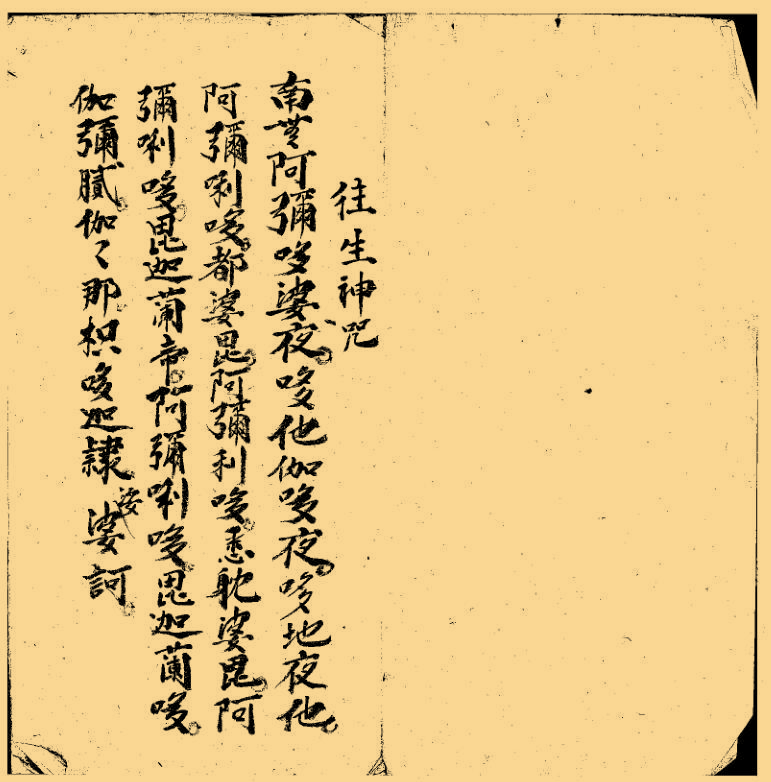 往生神咒
南無阿彌哆婆夜哆他伽哆夜哆地夜他
阿彌唎哆都婆毘阿彌利哆悉躭婆毘阿
彌唎哆毘迦蘭帝阿彌唎哆毘迦蘭哆
伽彌膩伽〻那枳哆迦隸婆訶